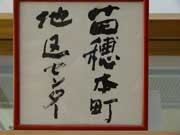 苗穂本町
地区センター